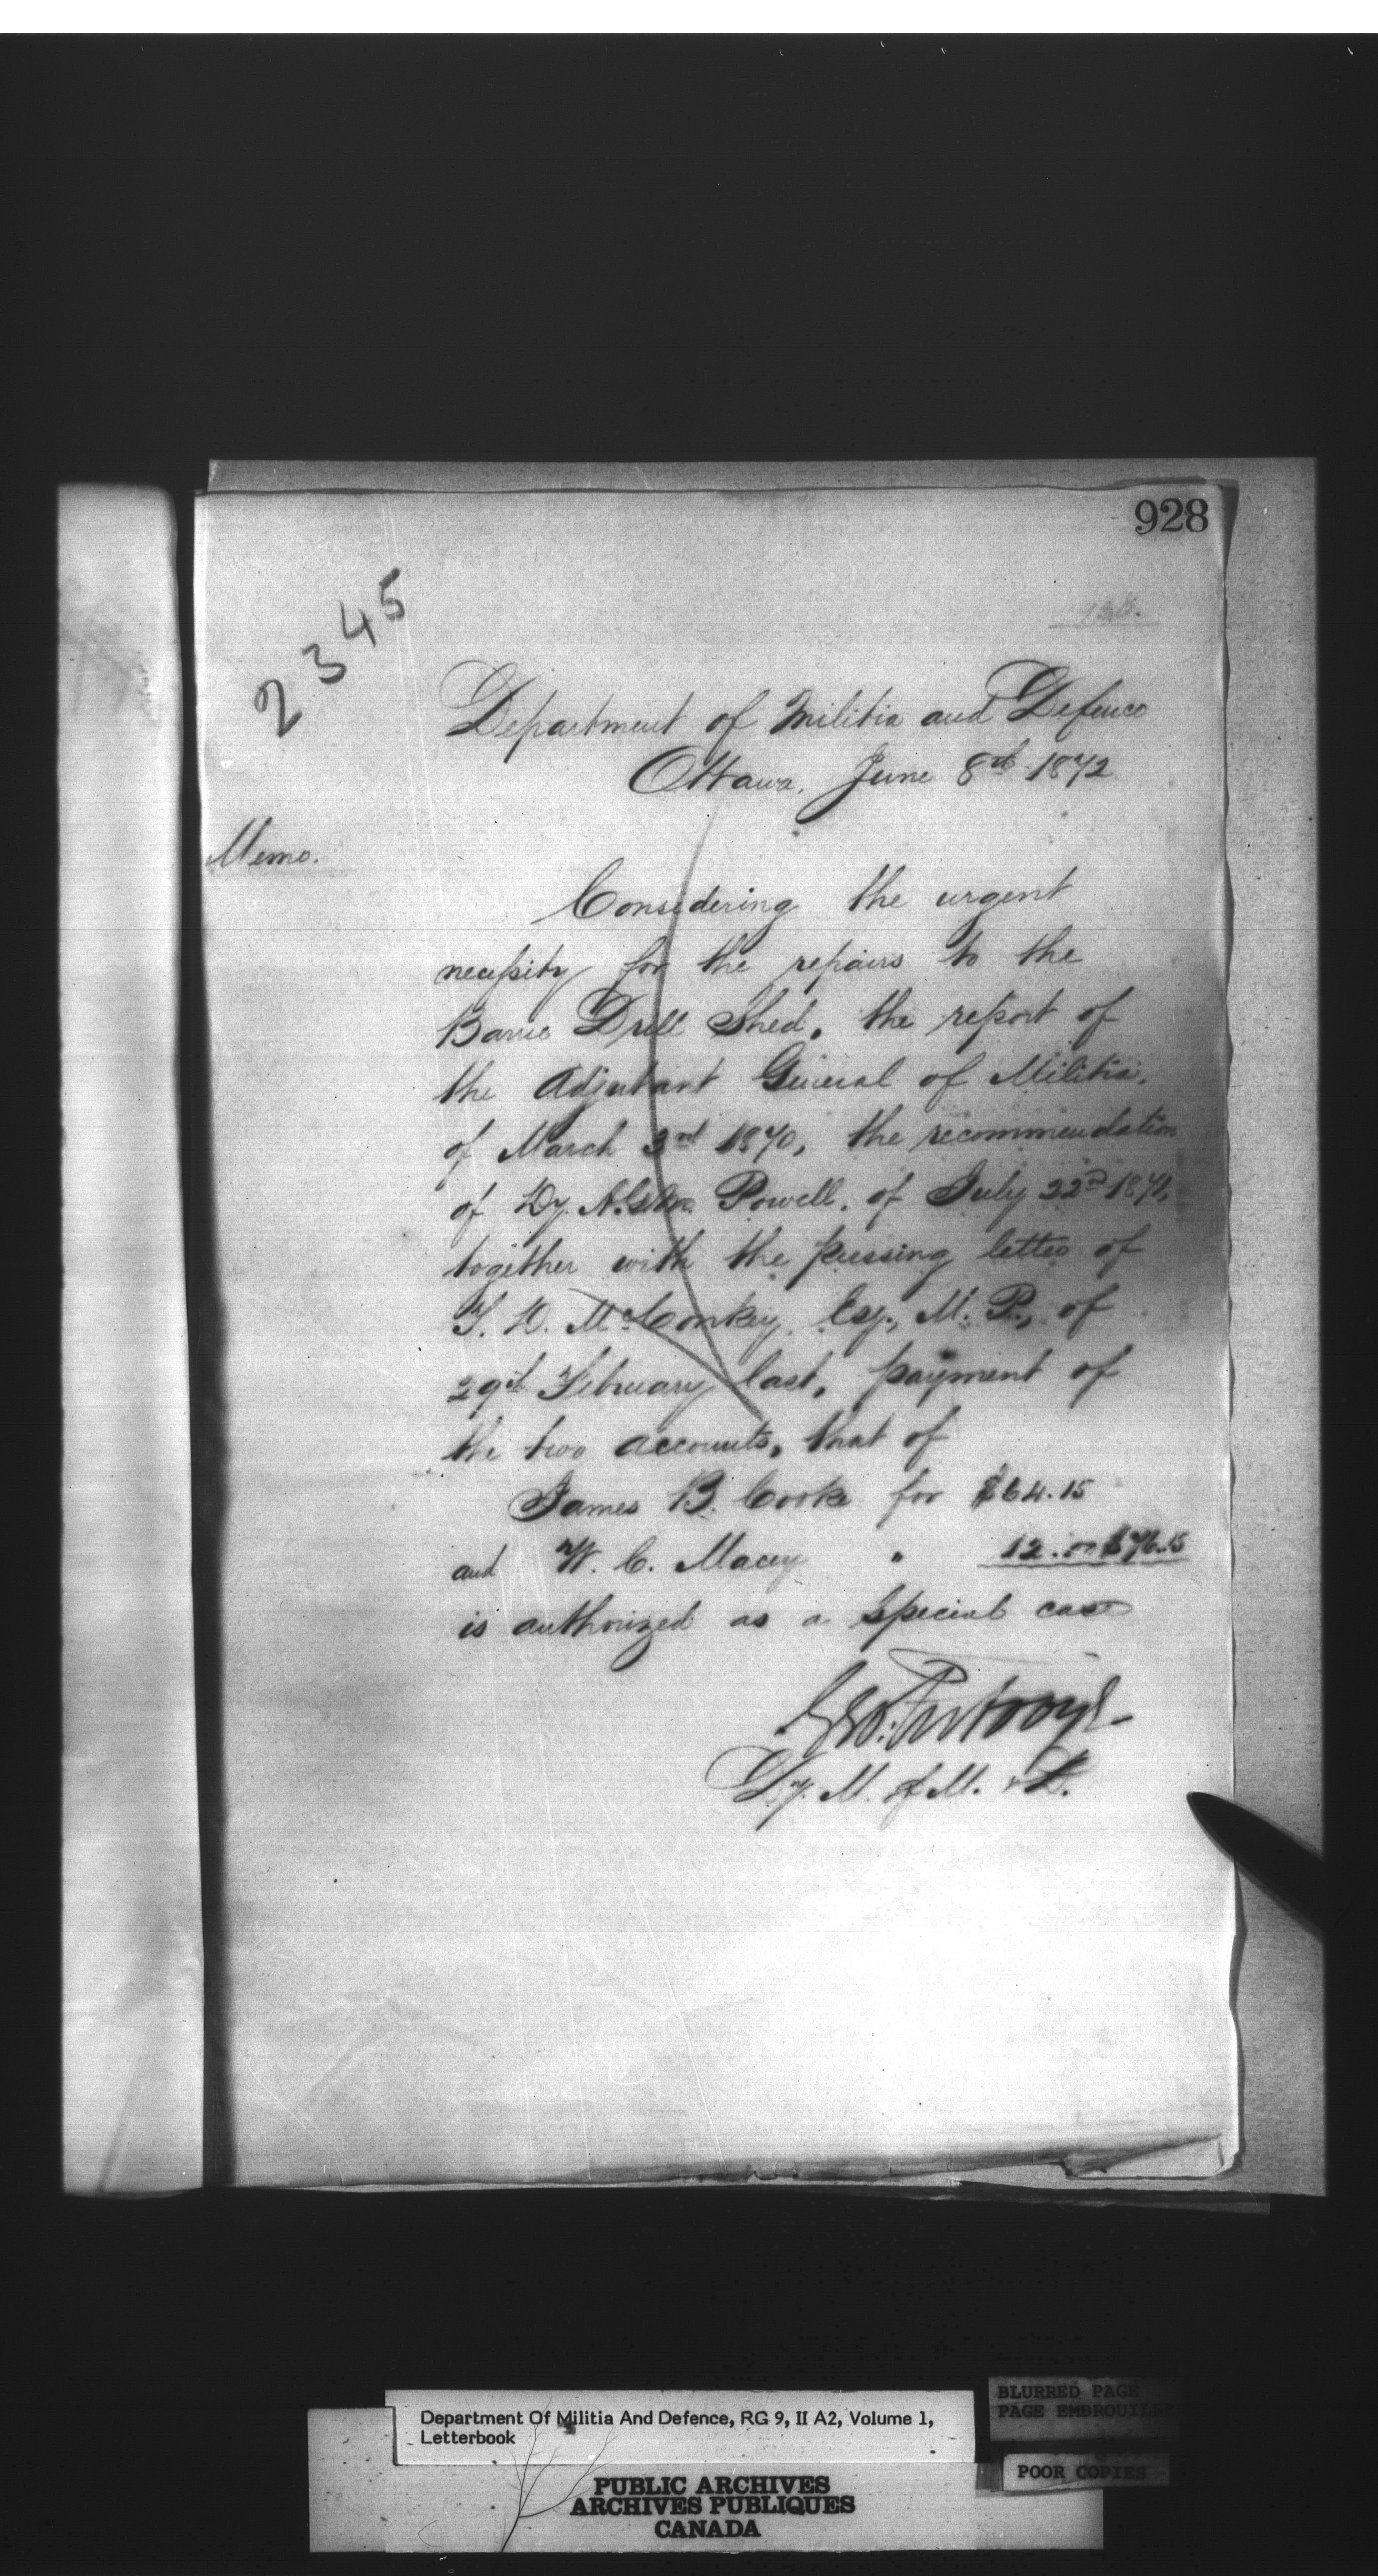 928
2345
Department of Militia and Defence
Ottawa, June 8th 1872
Memo.
Considering the urgent
necessity for the repairs to the
Barrie Drill Shed, the report of
the Adjutant General of Militia,
of March 3rd 1870, the recommendation
of Dy. Powell, of July 22nd 1871,
together with the pressing letter of
T. D. McConkey, Esq., M. P., of
29th February last, payment of
the two accounts, that of
James B. Cooke for $64.15
and W. C. Macey " 12.00 $76.15
is authorized as a special case
Geo. Futvoye
Dy. M. of M. & D.
BLURRED PAGE
PAGE EMBROUILLE
Department Of Militia And Defence, RG 9, II A2, Volume 1,
Letterbook
POOR COPIES
PUBLIC ARCHIVES
ARCHIVES PUBLIQUES
CANADA